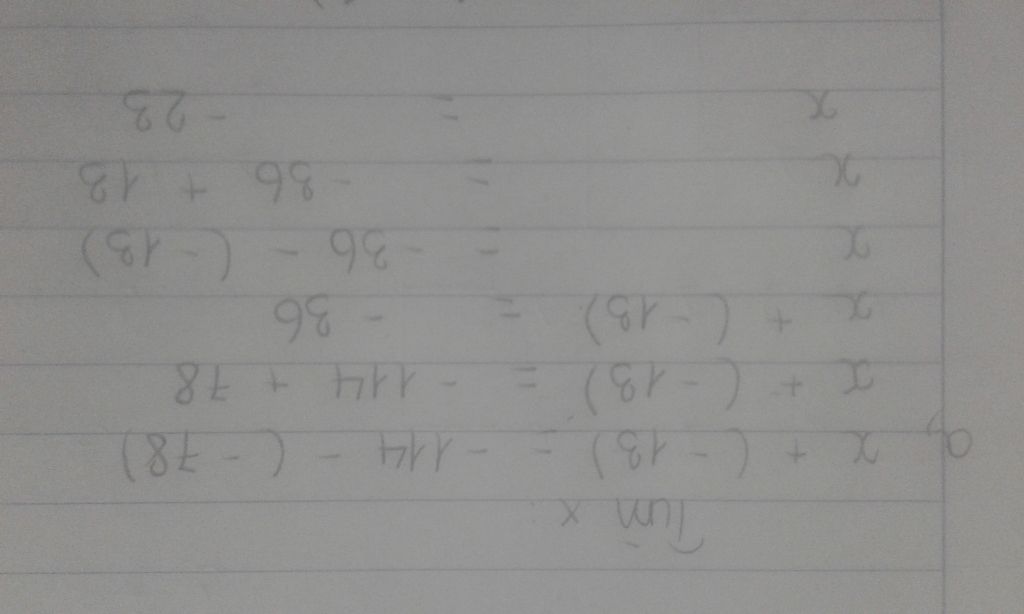 Tìm x:
a, x + (-13) = -114 - (-78)
x + (-13) = -114 + 78
x + (-13) = -36
x = -36 - (-13)
x = -36 + 13
x = -23